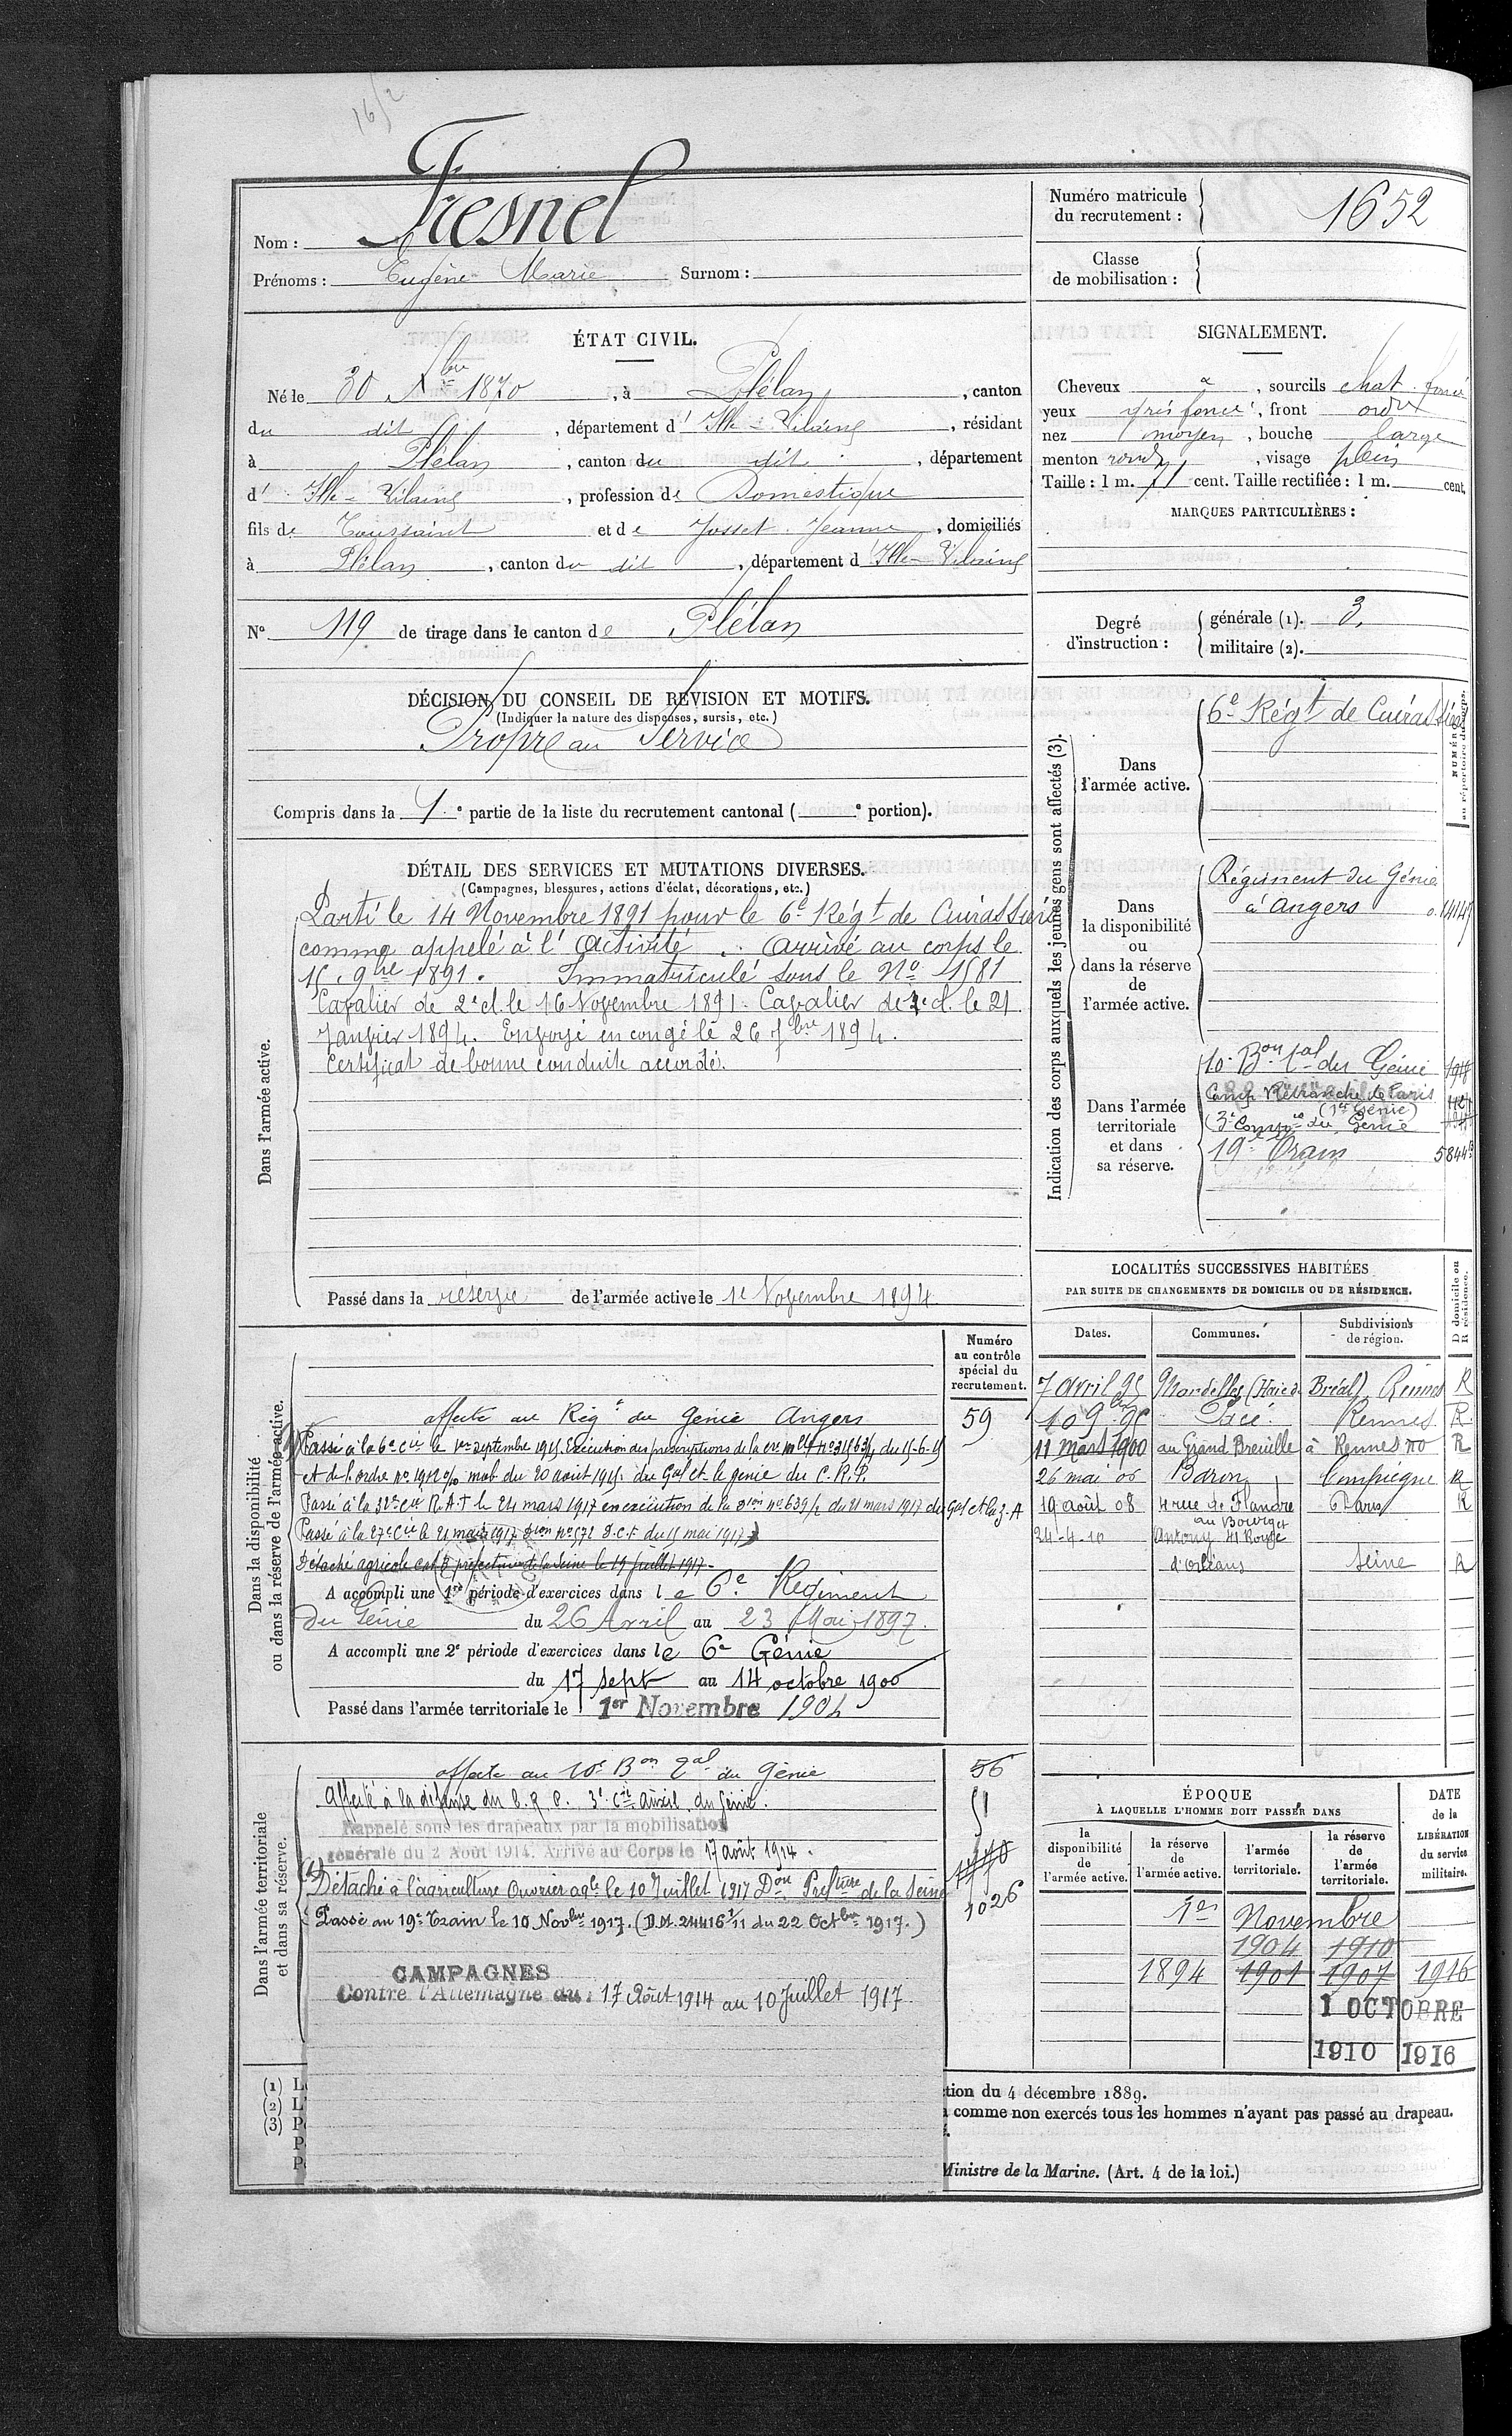 16/2
Nom : Fresnel
Prénoms : Eugène Marie Surnom :
Numéro matricule du recrutement : 1652
Classe de mobilisation :
ÉTAT CIVIL.
Né le 30 Xbre 1870, à Plélan, canton
du dit, département d' Ille-Vilaine, résidant
à Plélan, canton du dit, département
d' Ille-Vilaine, profession de Domestique
fils de Toussaint et de Josset Jeanne, domiciliés
à Plélan, canton du dit, département d'Ille-Vilaine
SIGNALEMENT.
Cheveux &, sourcils chat. foncé
yeux gris foncé, front ordre
nez moyen, bouche large
menton rond, visage plein
Taille : 1 m. 71 cent. Taille rectifiée : 1 m. cent.
MARQUES PARTICULIÈRES :
N° 119 de tirage dans le canton de Plélan
Degré d'instruction : générale (1). 3.
militaire (2).
DÉCISION DU CONSEIL DE REVISION ET MOTIFS.
(Indiquer la nature des dispenses, sursis, etc.)
Propre au Service
Compris dans la 1e partie de la liste du recrutement cantonal ( e portion).
DÉTAIL DES SERVICES ET MUTATIONS DIVERSES.
(Campagnes, blessures, actions d'éclat, décorations, etc.)
Dans l'armée active.
Parti le 14 Novembre 1891 pour le 6e Régt de Cuirassiers
comme appelé à l'activité. Arrivé au corps le
15 9bre 1891. Immatriculé sous le No 1581
Cavalier de 2e cl. le 16 Novembre 1891. Cavalier de 1e cl. le 21
Janvier 1894. Envoyé en congé le 26 7bre 1894.
Certificat de bonne conduite accordé.
Passé dans la réserve de l'armée active le 1e Novembre 1894
Indication des corps auxquels les jeunes gens sont affectés (3).
NUMÉRO au répertoire du corps.
Dans l'armée active.
6e Régt de Cuirassiers
Dans la disponibilité ou dans la réserve de l'armée active.
Régiment du Génie
à Angers 0.14147
Dans l'armée territoriale et dans sa réserve.
10e Bon tal du Génie
Camp Retranché de Paris
(1er Génie)
(3e Compie du Génie
19e Train 5844
LOCALITÉS SUCCESSIVES HABITÉES
PAR SUITE DE CHANGEMENTS DE DOMICILE OU DE RÉSIDENCE.
Dates. Communes. Subdivisions de région. D domicile ou R résidence.
7 avril 95 Mordelles (Haie de Bréal) Rennes R
10 9bre 96 Pacé Rennes R
11 mars 1900 au Grand Breuille à Rennes no R
26 mai 06 Baron Compiègne R
19 août 08 4 rue de Flandre au Bourget Paris R
24-4-10 Antony 41 Route d'Orléans Seine R
Dans la disponibilité ou dans la réserve de l'armée active.
Numéro au contrôle spécial du recrutement.
affecté au Régt du Génie Angers 59
Passé à la 6e Cie le 1er septembre 1915 Exécution des prescriptions de la cre mlle no 3156 3/4 du 15-6-15
et de l'ordre no 1912 0/0 mob du 20 août 1915 du Gal ct le génie du C.R.P.
Passé à la 32e Cie R.A.T le 24 mars 1917 en exécution de la Don no 639/2 du 21 mars 1917 du Gal ct la 3. A
Passé à la 27e Cie le 21 mai 1917 Don no 572 D.C.F du 15 mai 1917
Détaché agricole préfecture de la Seine le 19 juillet 1917
A accompli une 1re période d'exercices dans le 6e Régiment
du Génie du 26 Avril au 23 Mai 1897.
A accompli une 2e période d'exercices dans le 6e Génie
du 17 sept au 14 octobre 1900
Passé dans l'armée territoriale le 1er Novembre 1904
Dans l'armée territoriale et dans sa réserve.
affecté au 10e Bon Tal du Génie 56
Affecté à la défense du C.R.P. 3e Cie auxil. du Génie. 51
Rappelé sous les drapeaux par la mobilisation
générale du 2 Août 1914. Arrivé au Corps le 17 août 1914.
(1) Détaché à l'agriculture Ouvrier agle le 10 Juillet 1917 Don Prefture de la Seine
1026
Passé au 19e Train le 10 Novbre 1917. (D.M. 24416 3/11 du 22 Octbre 1917.)
CAMPAGNES
Contre l'Allemagne du : 17 Août 1914 au 10 Juillet 1917
ÉPOQUE
À LAQUELLE L'HOMME DOIT PASSER DANS
la disponibilité de l'armée active. la réserve de l'armée active. l'armée territoriale. la réserve de l'armée territoriale.
DATE de la LIBÉRATION du service militaire.
1er Novembre
1904 1910
1894 1901 1907 1916
1 OCTOBRE
1910 1916
(1) L
(2) L'
(3) P
P
P
ction du 4 décembre 1889.
comme non exercés tous les hommes n'ayant pas passé au drapeau.
Ministre de la Marine. (Art. 4 de la loi.)